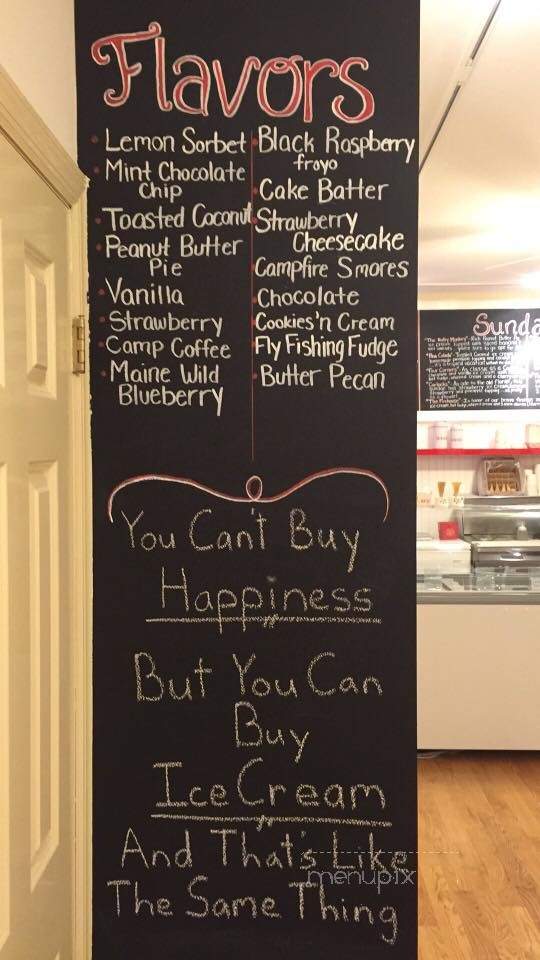 Flavors
Lemon Sorbet
Mint Chocolate
Chip
Toasted Coconut
Peanut Butter
Pie
Vanilla
Strawberry
Camp Coffee
Maine Wild
Blueberry
Black Raspberry
froyo
Cake Batter
Strawberry
Cheesecake
Campfire Smores
Chocolate
Cookies'n Cream
Fly Fishing Fudge
Butter Pecan
You Can't Buy
Happiness
But You Can
Buy
Ice Cream
And That's Like
The Same Thing
menupix
Sunda